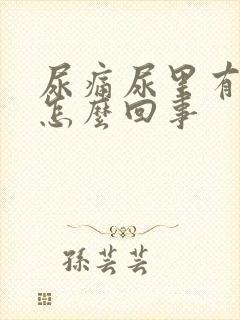 尿痛尿里有
怎麼回事
孫芸芸